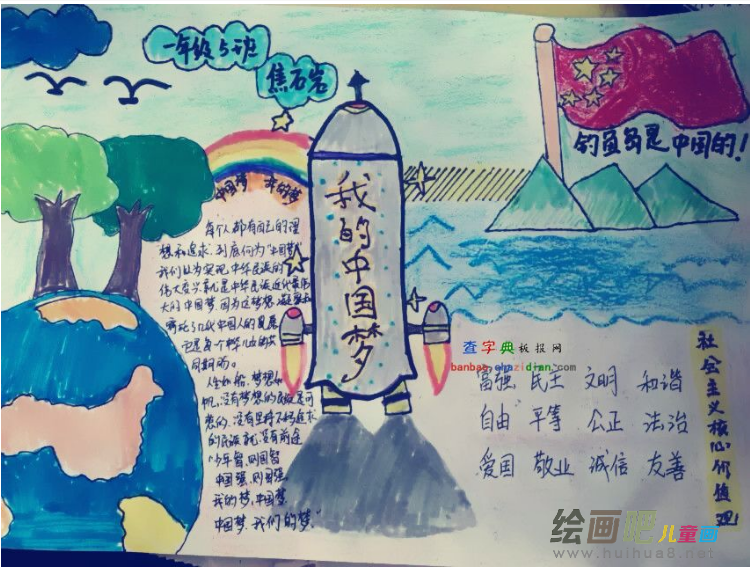 一年级5班
焦石岩
钓鱼岛是中国的！
中国梦 我的梦
我的中国梦
每个人都有自己的理
想和追求，到底何为"中国梦"
我们认为实现中华民族的
伟大复兴就是中华民族近代最伟
大的中国梦，因为这梦想凝聚和
寄托了几代中国人的夙愿
它是每个中华儿女的共
同期盼。
人生如船，梦想如
帆，没有梦想的民族是可
悲的，没有坚持不
的民族就没有前途
"少年智，则国智
中国强，则国强
我的梦，中国梦
中国梦，我们的梦。"
查字典板报网
banbao.chazidian.com
富强 民主 文明 和谐
自由 平等 公正 法治
爱国 敬业 诚信 友善
社会主义核心价值观
绘画吧儿童画
www.huihua8.net